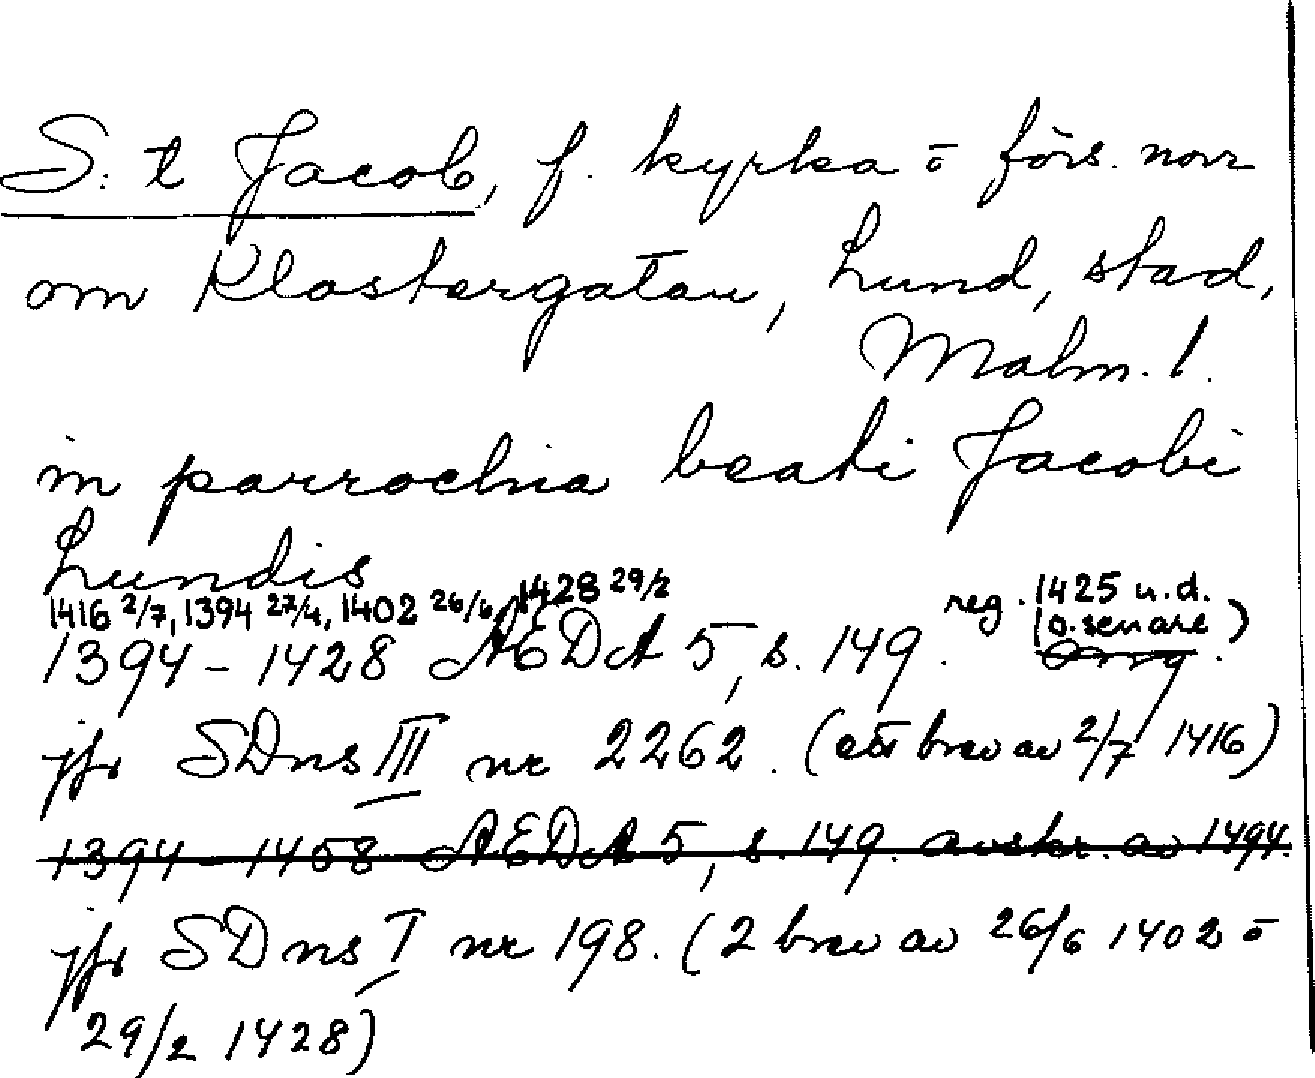 S:t Jacob, f. kyrka oförs. norr
om Klostergatan, Lund, stad,
Malm. l.
in parrochia beati Jacobi
Lundis
1416 2/7, 1394 27/4, 1402 26/6, 1428 29/2
reg. 1425 u.d.
(o. senare)
1394 - 1428 AEDA 5, s. 149.
jfr SDns III nr 2262. (ett brev av 2/7 1416)
1394 - 1408 AEDA 5, s. 149. avskr. av 1494.
jfr SDns I nr 198. (2 brev av 26/6 1402 o
29/2 1428)